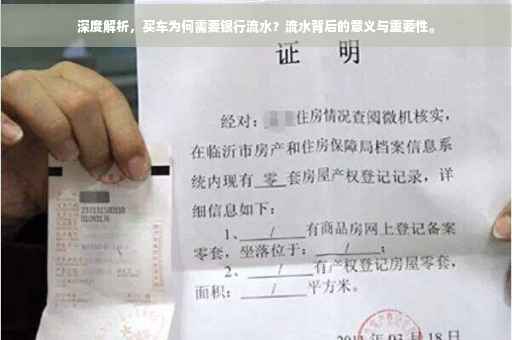 深度解析，买车为何需要银行流水？流水背后的意义与重要性。
证 明
经对：住房情况查阅微机核实，
在临沂市房产和住房保障局档案信息系
统内现有 零 套房屋产权登记记录，详
细信息如下：
1、 / 有商品房网上登记备案
零套，坐落位于： / ；
2、 / 有产权登记房屋零套，
面积： / 平方米。